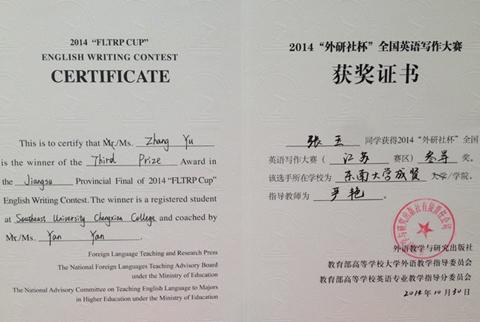 2014 “FLTRP CUP”
ENGLISH WRITING CONTEST
CERTIFICATE
This is to certify that Mr./Ms. Zhang Yu
is the winner of the Third Prize Award in
the Jiangsu Provincial Final of 2014 “FLTRP Cup”
English Writing Contest. The winner is a registered student
at Southeast University Chengxian College and coached by
Mr./Ms. Yan Yan.
Foreign Language Teaching and Research Press
The National Foreign Languages Teaching Advisory Board
under the Ministry of Education
The National Advisory Committee on Teaching English Language to Majors
in Higher Education under the Ministry of Education
2014 “外研社杯” 全国英语写作大赛
获奖证书
张玉 同学获得2014 “外研社杯” 全国
英语写作大赛（ 江苏 赛区）叁等 奖。
该选手所在学校为 东南大学成贤 大学/学院，
指导教师为 尹艳 。
外语教学与研究出版社
教育部高等学校大学外语教学指导委员会
教育部高等学校英语专业教学指导分委员会
2014年10月30日